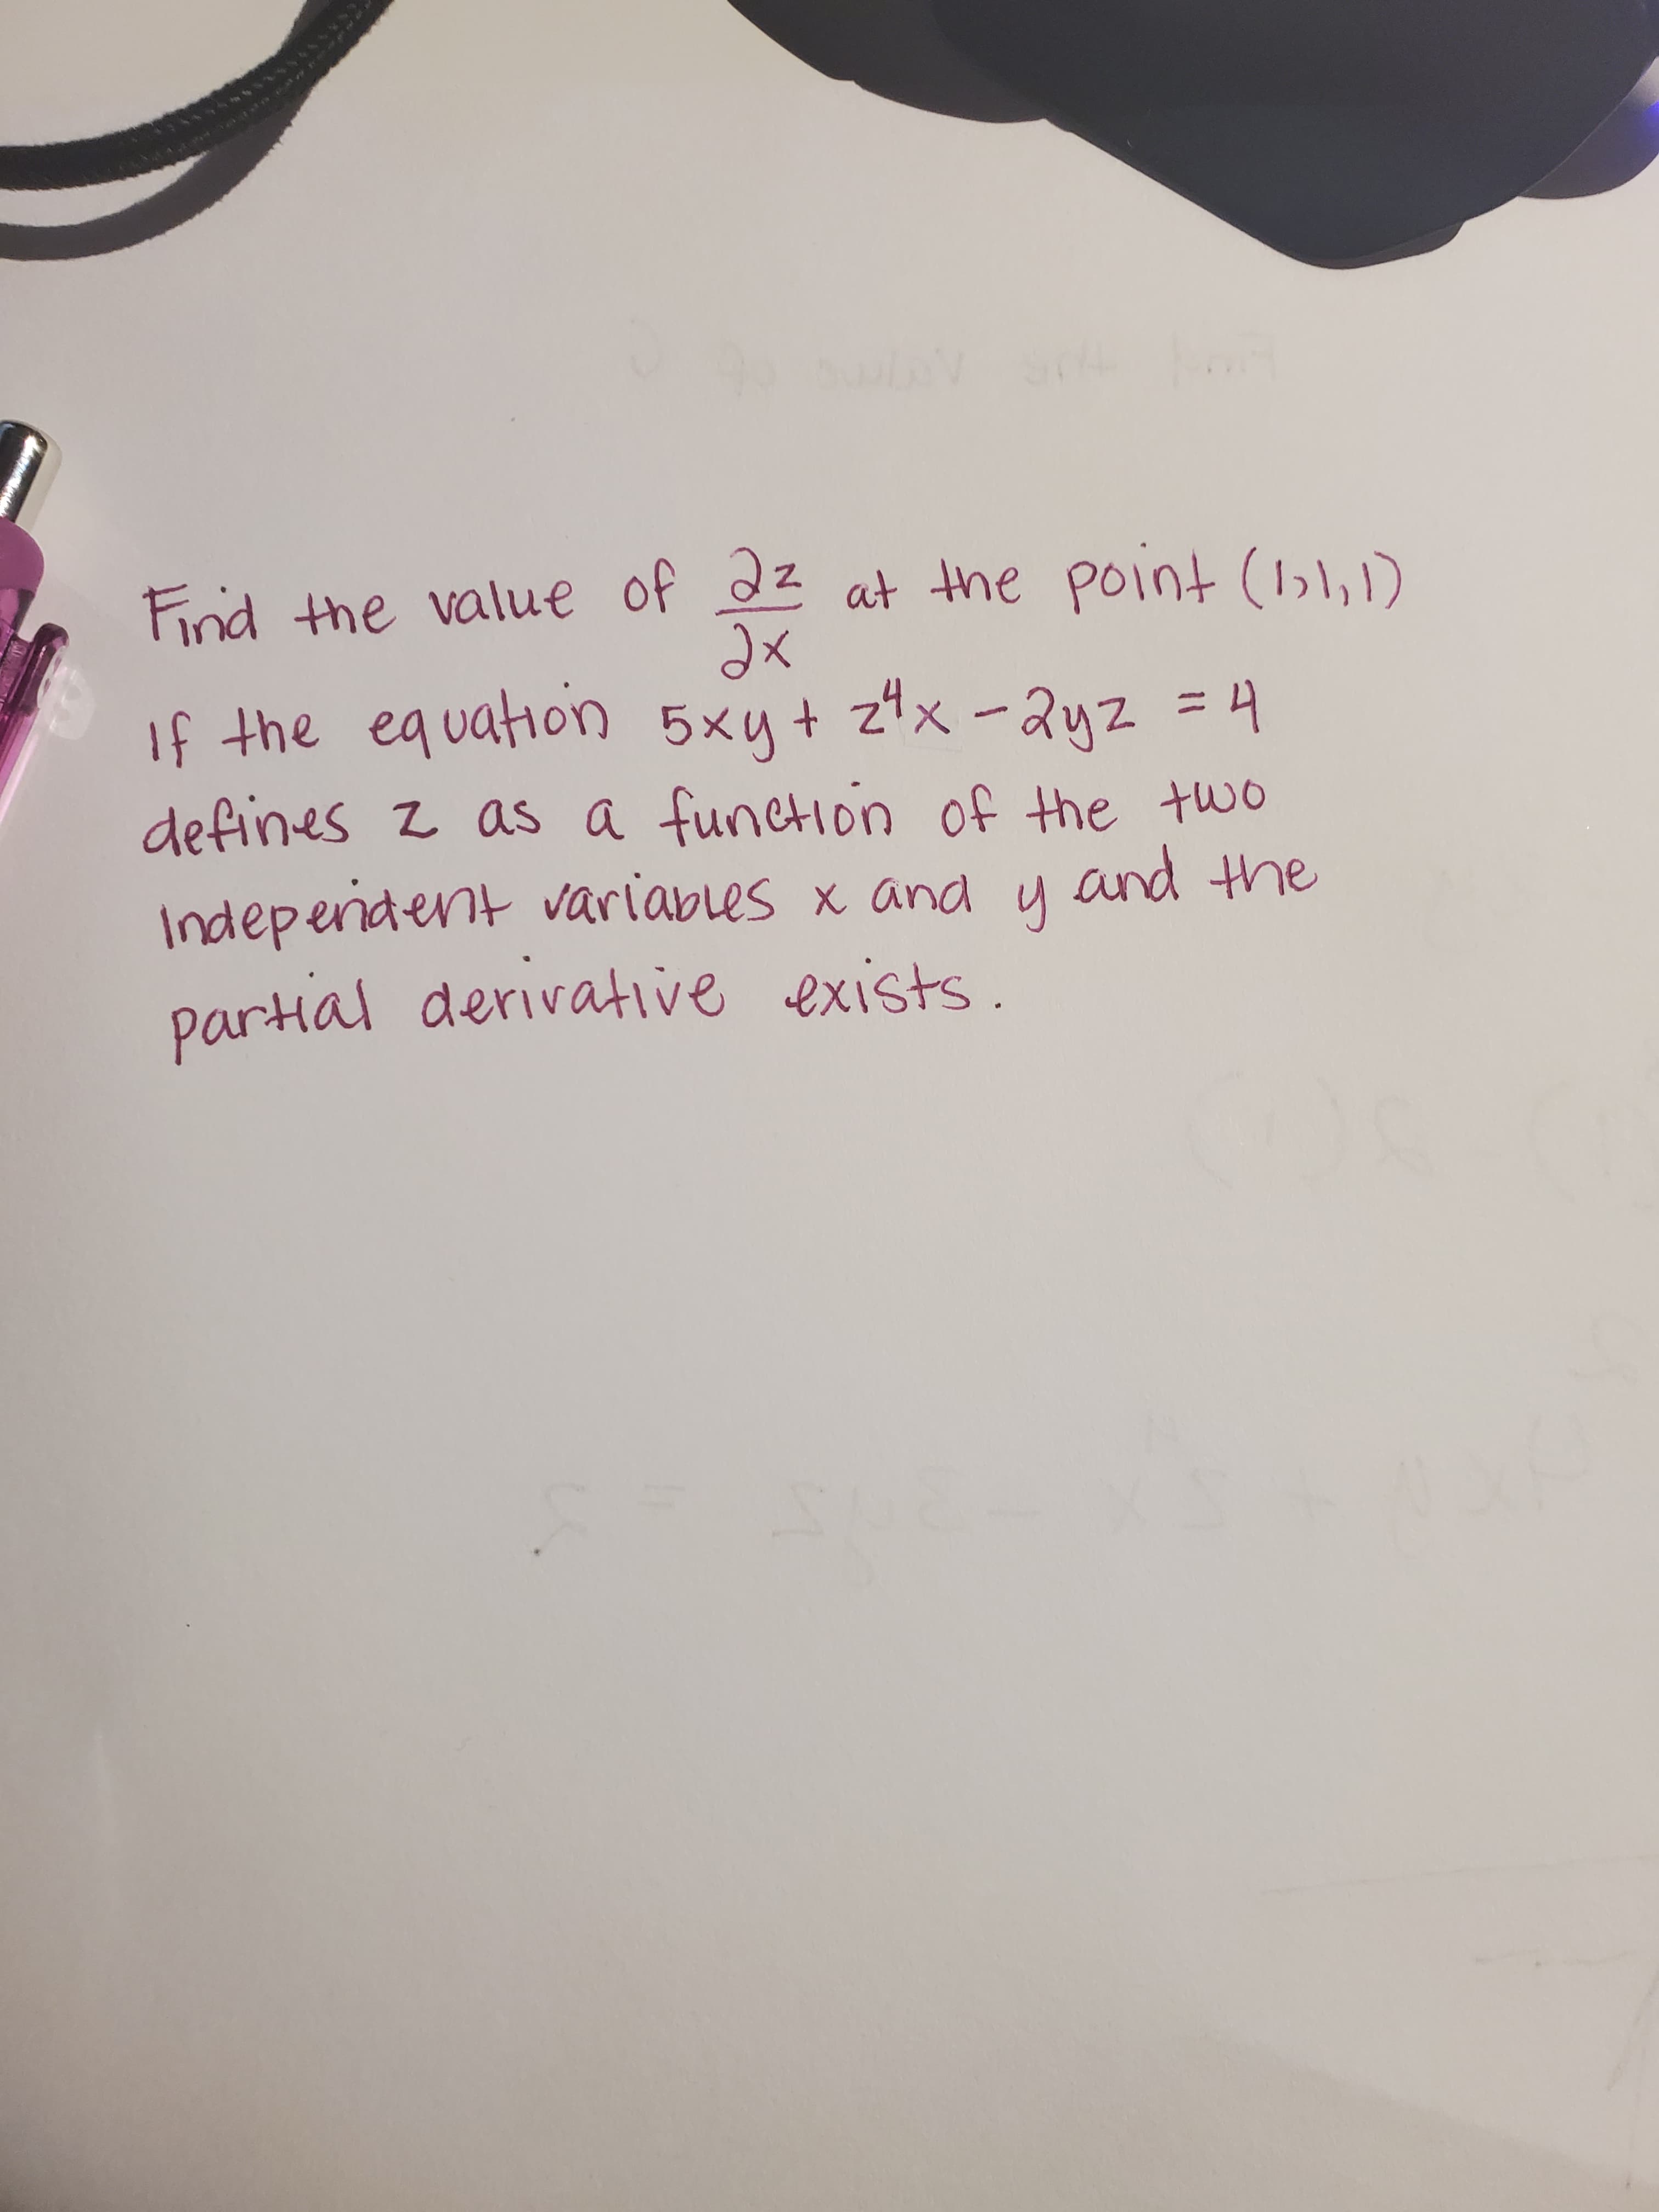 Find the value of ∂z/∂x at the point (1,1,1)
If the equation 5xy + z⁴x - 2yz = 4
defines z as a function of the two
independent variables x and y and the
partial derivative exists.